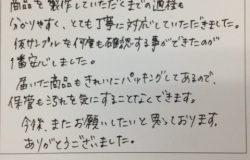 商品を製作していただくまでの過程も
分かりやすく、とても丁寧に対応していただきました。
仮サンプルを何度も確認する事ができたのが
1番安心しました。
届いた商品もきれいにパッキングしてあるので、
保管も汚れを気にすることなくできます。
今後、またお願いしたいと思っております。
ありがとうございました。